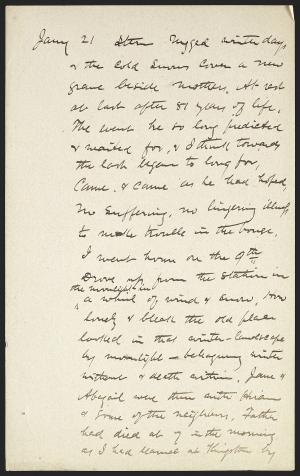 Jany 21 Stern rugged winter days
& the cold snows cover a new
grave beside mothers. At rest
at last after 81 years of life.
The event he so long predicted
& waited for, & I think towards
the last began to long for,
Came, & came as he had hoped,
no suffering, no lingering illness
to make trouble in the house.
I went home on the 9th
Drove up from the station in
the moonlight in
a whirl of wind & snow, how
lonely & bleak the old place
looked in that winter landscape
by moonlight — beleaguering winter
without & death within, Jane &
Abigail were there with Hiram
& some of the neighbors. Father
had died at 7 in the morning
as I had learned at Kingston by